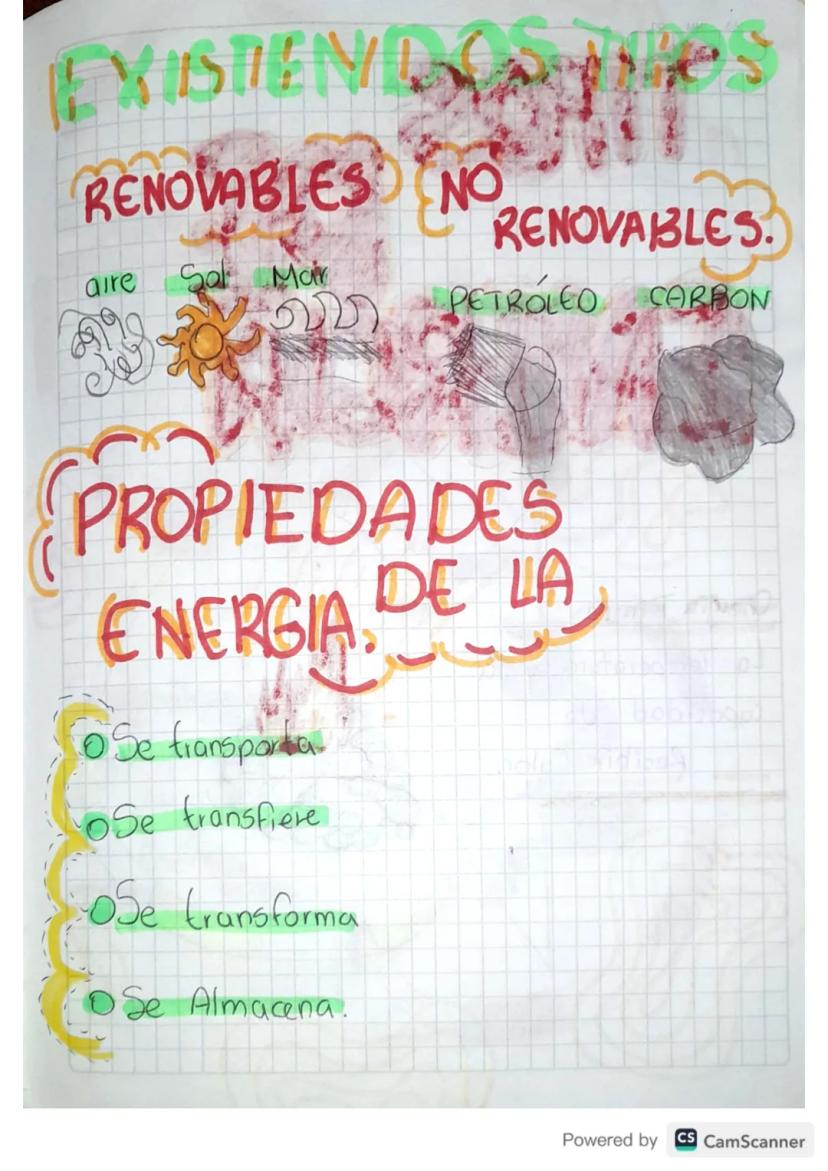 EXISTEN DOS TIPOS
RENOVABLES
NO
RENOVABLES.
aire Sol Mar
PETRÓLEO CARBON
PROPIEDADES
DE LA
ENERGIA.
Se transporta.
Se transfiere
Se transforma
Se Almacena.
Powered by CS CamScanner